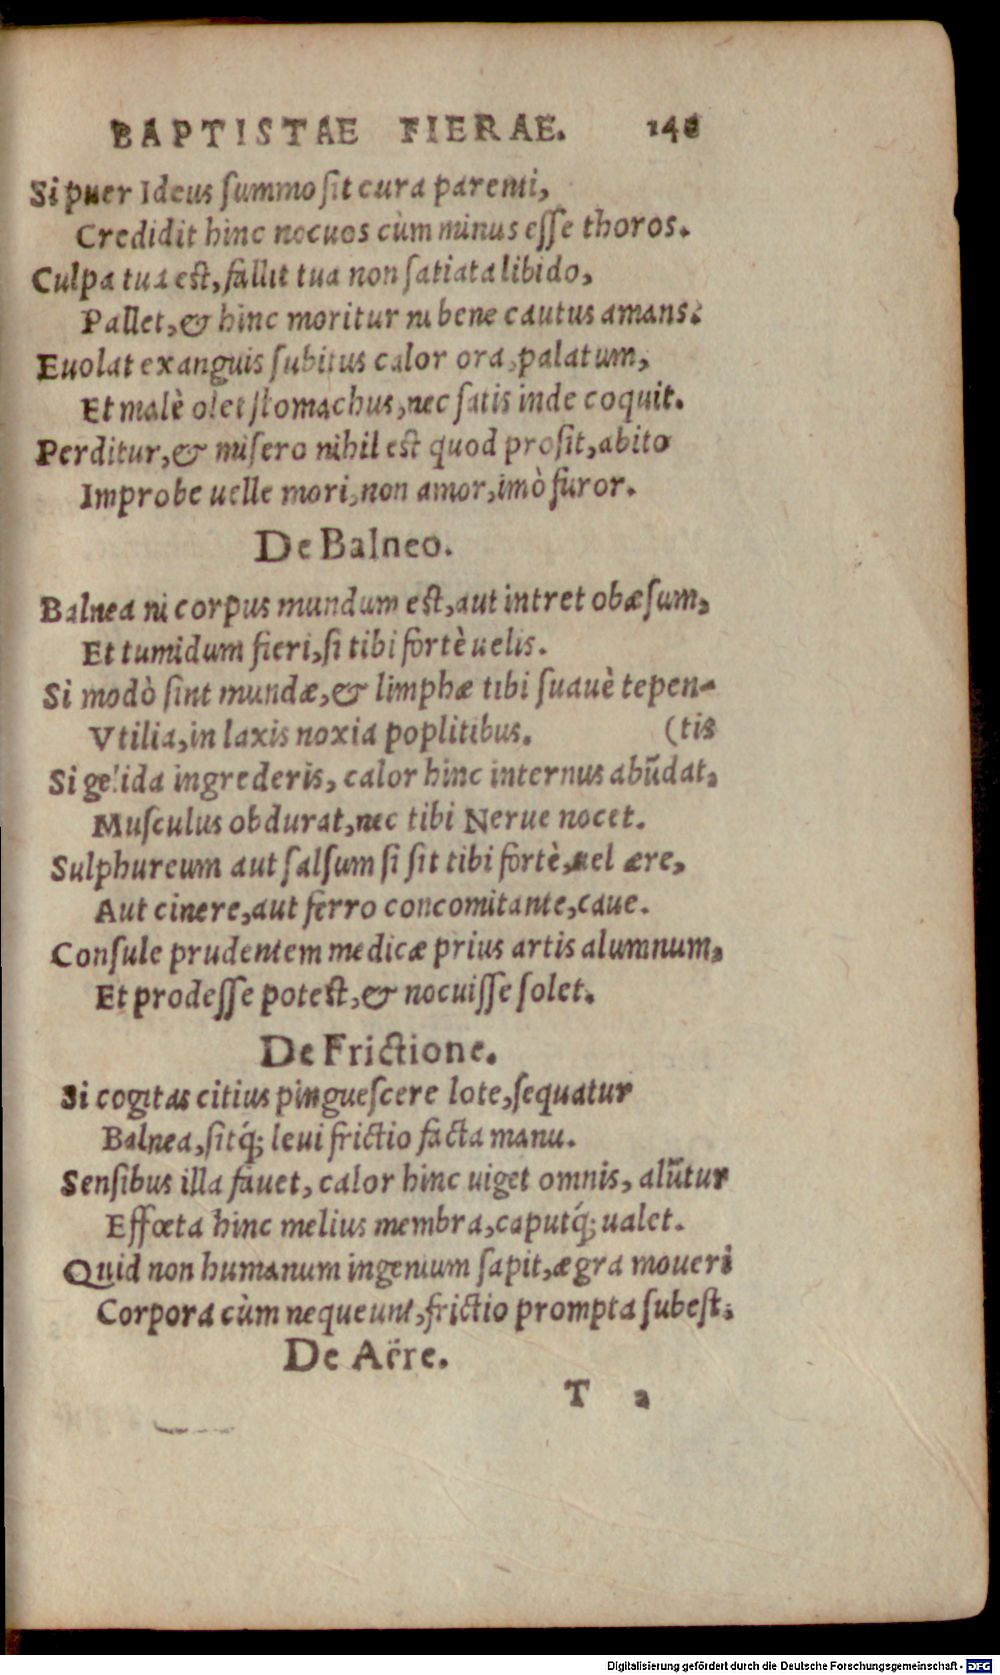 BAPTISTAE FIERAE. 148
Si puer Ideus summo sit cura parenti,
Credidit hinc nocuos cùm minus esse thoros.
Culpa tua est, fallit tua non satiata libido,
Pallet, & hinc moritur ni bene cautus amans:
Euolat exanguis subitus calor ora, palatum,
Et malè olet stomachus, nec satis inde coquit.
Perditur, & misero nihil est quod prosit, abito
Improbe uelle mori, non amor, imò furor.
De Balneo.
Balnea ni corpus mundum est, aut intret obæsum,
Et tumidum fieri, si tibi fortè uelis.
Si modò sint mundæ, & limphæ tibi suauè tepen-
Vtilia, in laxis noxia poplitibus. (tis
Si gelida ingrederis, calor hinc internus abũdat,
Musculus obdurat, nec tibi Nerue nocet.
Sulphureum aut salsum si sit tibi fortè, uel ære,
Aut cinere, aut ferro concomitante, caue.
Consule prudentem medicæ prius artis alumnum,
Et prodesse potest, & nocuisse solet.
De Frictione.
Si cogitas citius pinguescere lote, sequatur
Balnea, sitq́; leui frictio facta manu.
Sensibus illa fauet, calor hinc uiget omnis, alũtur
Effœta hinc melius membra, caputq́; ualet.
Quid non humanum ingenium sapit, ægra moueri
Corpora cùm nequeunt, frictio prompta subest.
De Aëre.
T 2
Digitalisierung gefördert durch die Deutsche Forschungsgemeinschaft - DFG